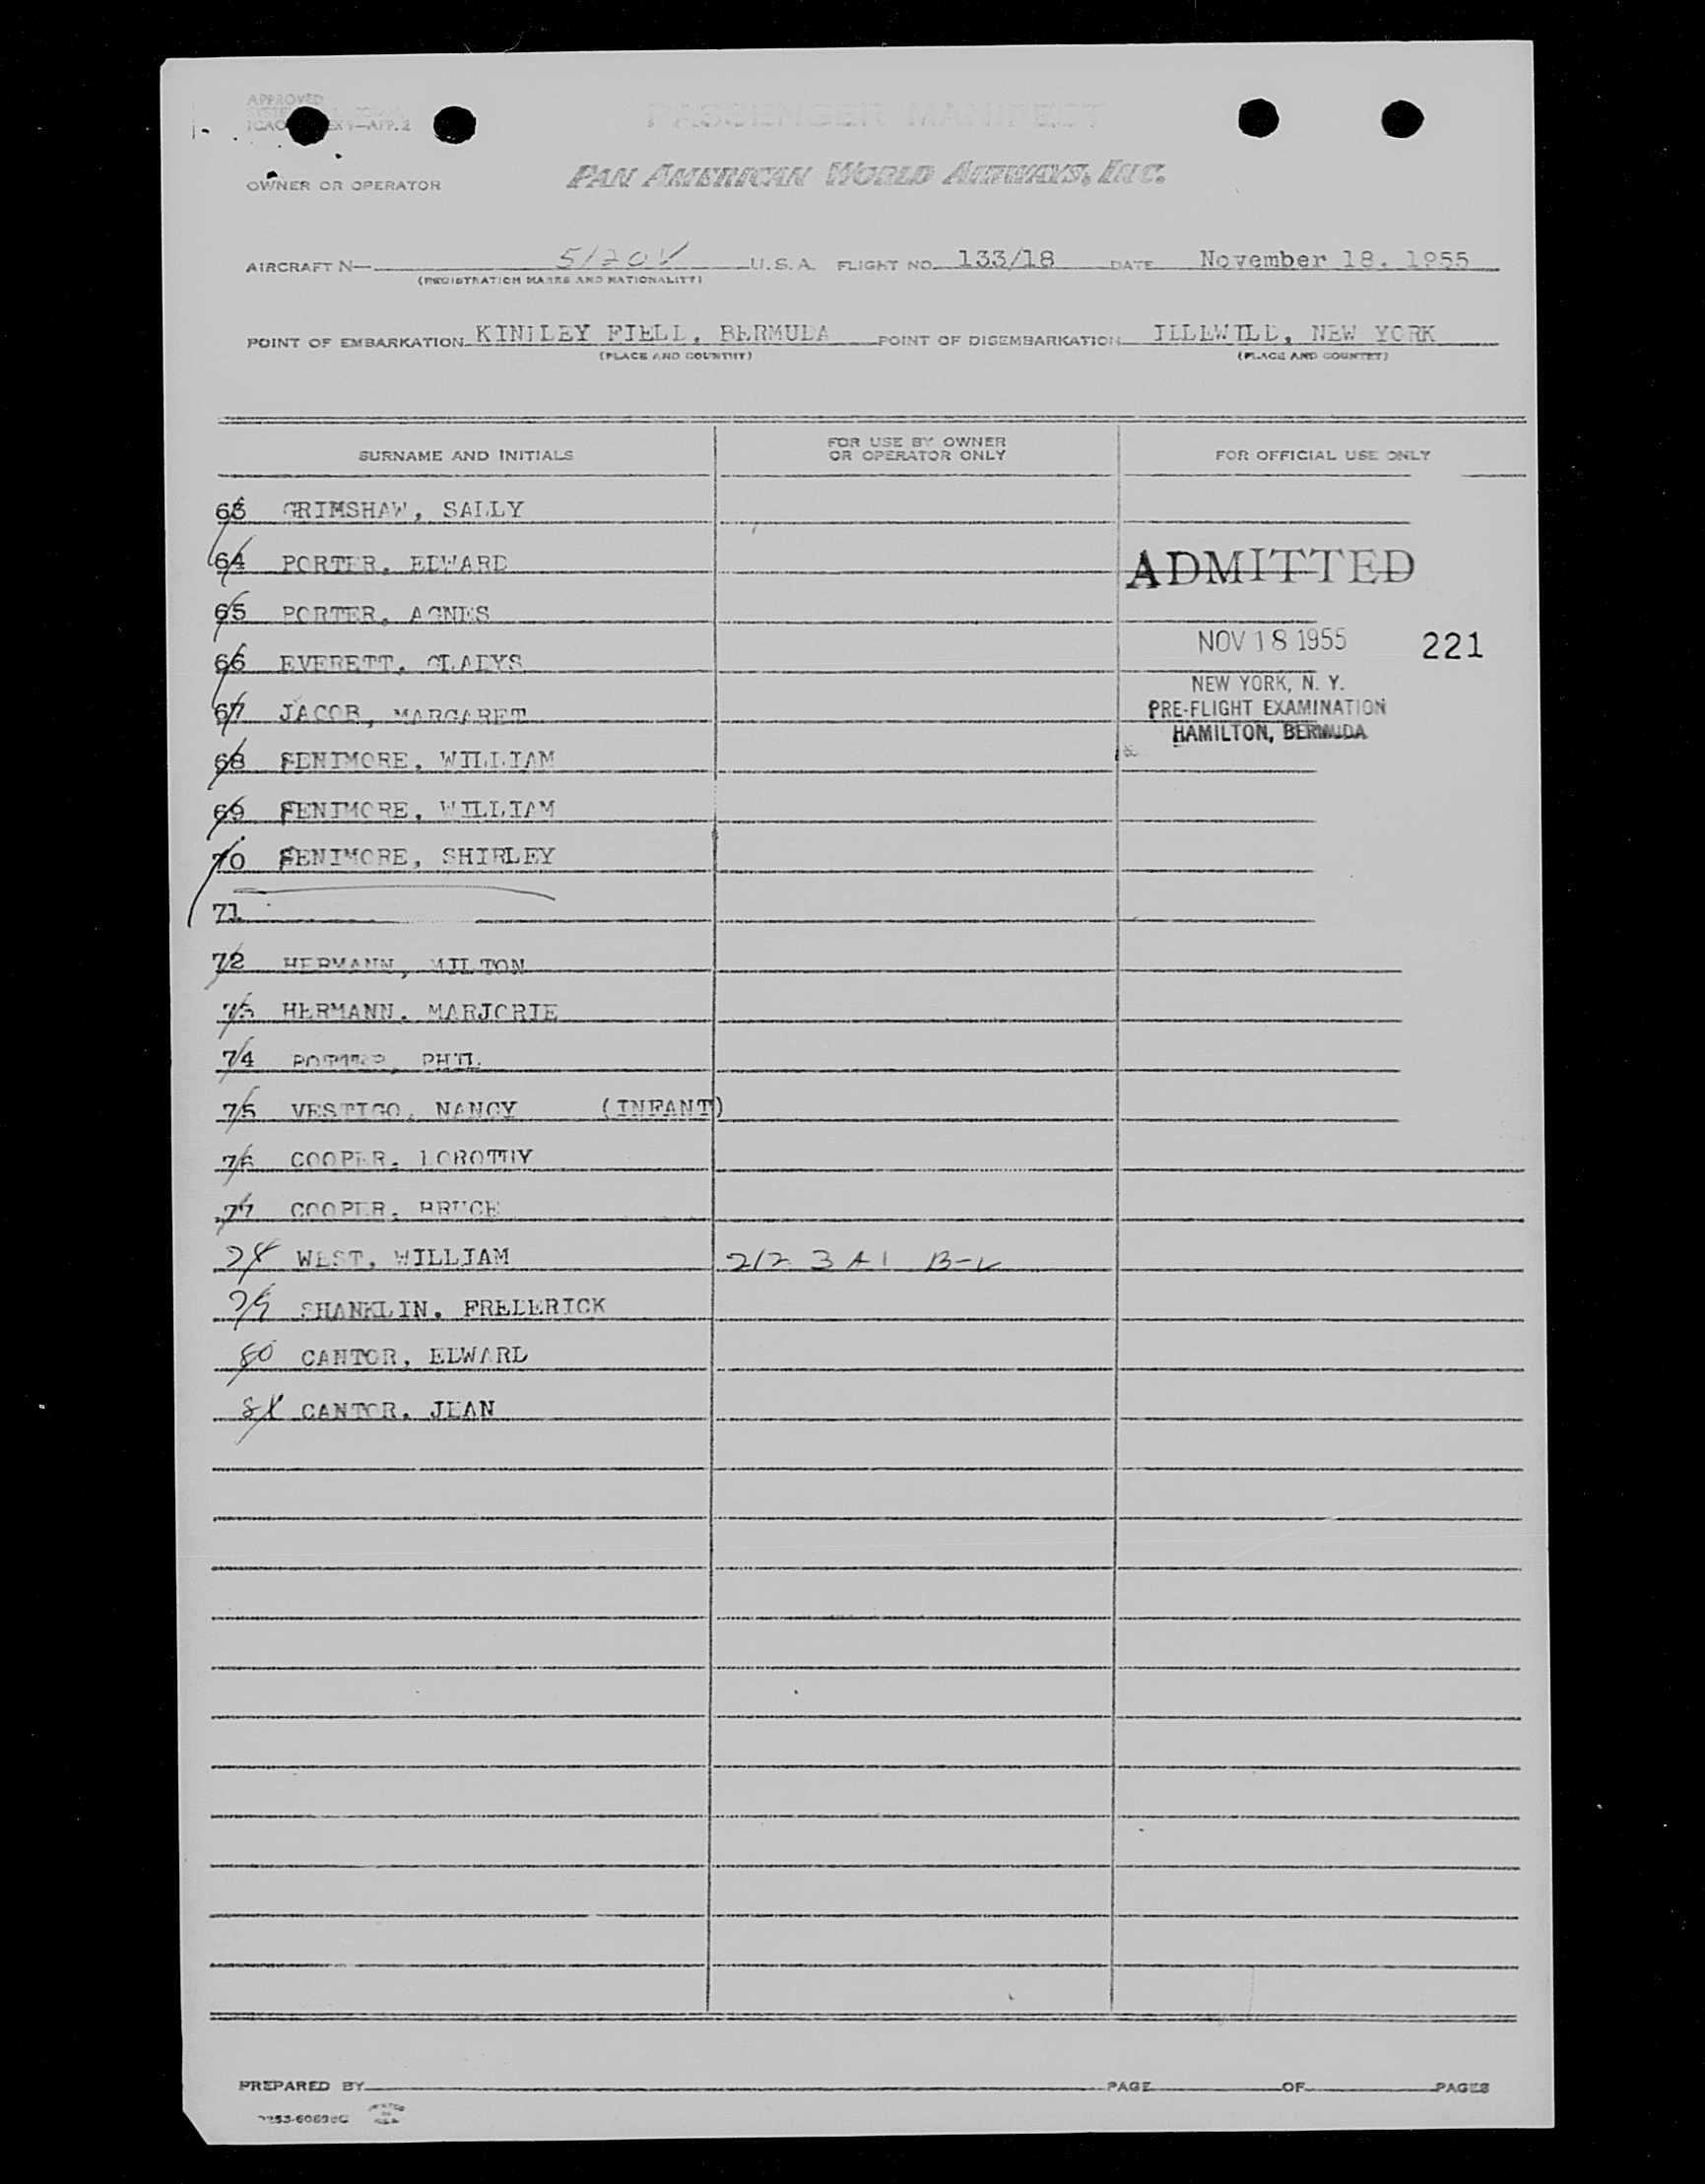 APPROVED
ICAO EX 1—APP. 2
PASSENGER MANIFEST
OWNER OR OPERATOR PAN AMERICAN WORLD AIRWAYS, INC.
AIRCRAFT N— 5120V U.S.A. FLIGHT NO. 133/18 DATE November 18, 1955
(REGISTRATION MARKS AND NATIONALITY)
POINT OF EMBARKATION KINDLEY FIELD, BERMUDA POINT OF DISEMBARKATION IDLEWILD, NEW YORK
(PLACE AND COUNTRY) (PLACE AND COUNTRY)
SURNAME AND INITIALS FOR USE BY OWNER OR OPERATOR ONLY FOR OFFICIAL USE ONLY
63 GRIMSHAW, SALLY
64 PORTER, EDWARD ADMITTED
65 PORTER, AGNES
NOV 18 1955 221
66 EVERETT, GLADYS
NEW YORK, N. Y.
67 JACOB, MARGARET PRE-FLIGHT EXAMINATION
HAMILTON, BERMUDA
68 FENIMORE, WILLIAM
69 FENIMORE, WILLIAM
70 FENIMORE, SHIRLEY
71
72 HERMANN, MILTON
73 HERMANN, MARJORIE
74 POTTER, PHIL
75 VESTIGO, NANCY (INFANT)
76 COOPER, DOROTHY
77 COOPER, BRUCE
78 WEST, WILLIAM 212 3 A1 B-2
79 SHANKLIN, FREDERICK
80 CANTOR, EDWARD
81 CANTOR, JEAN
PREPARED BY PAGE OF PAGES